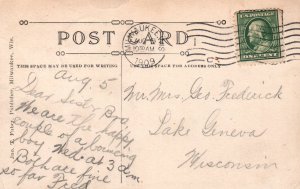 POST CARD
MILWAUKEE, WIS.
1909
ONE CENT
THIS SPACE MAY BE USED FOR WRITING
THIS SPACE IS FOR ADDRESS ONLY
Publisher, Milwaukee, Wis.
Aug. 5
Dear Sister & Bro
We are the happy
couple of a bouncing
boy Wed at 3 am
Both are fine
so far Fred
Mr. Mrs. Geo. Frederick
Lake Geneva
Wisconsin